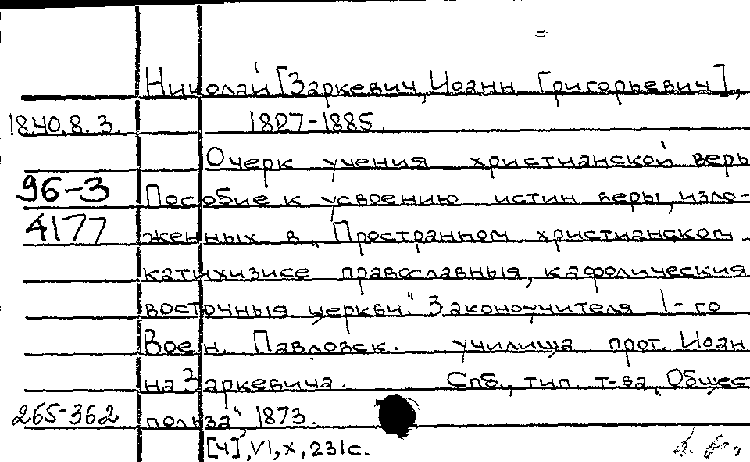 Николай [Заркевич, Иоанн Григорьевич],
1840.8.3. 1827-1885.
Очерк учения христианской веры
96-3 Пособие к усвоению истин веры, изло-
4177 женных в „Пространном христианском
катихизисе православныя, кафолическия
восточныя церкви." Законоучителя 1-го
Воен. Павловск. училища прот. Иоан
на Заркевича. Спб., тип. т-ва „Общес
265-362 польза", 1873.
[4], VI, X, 231с.